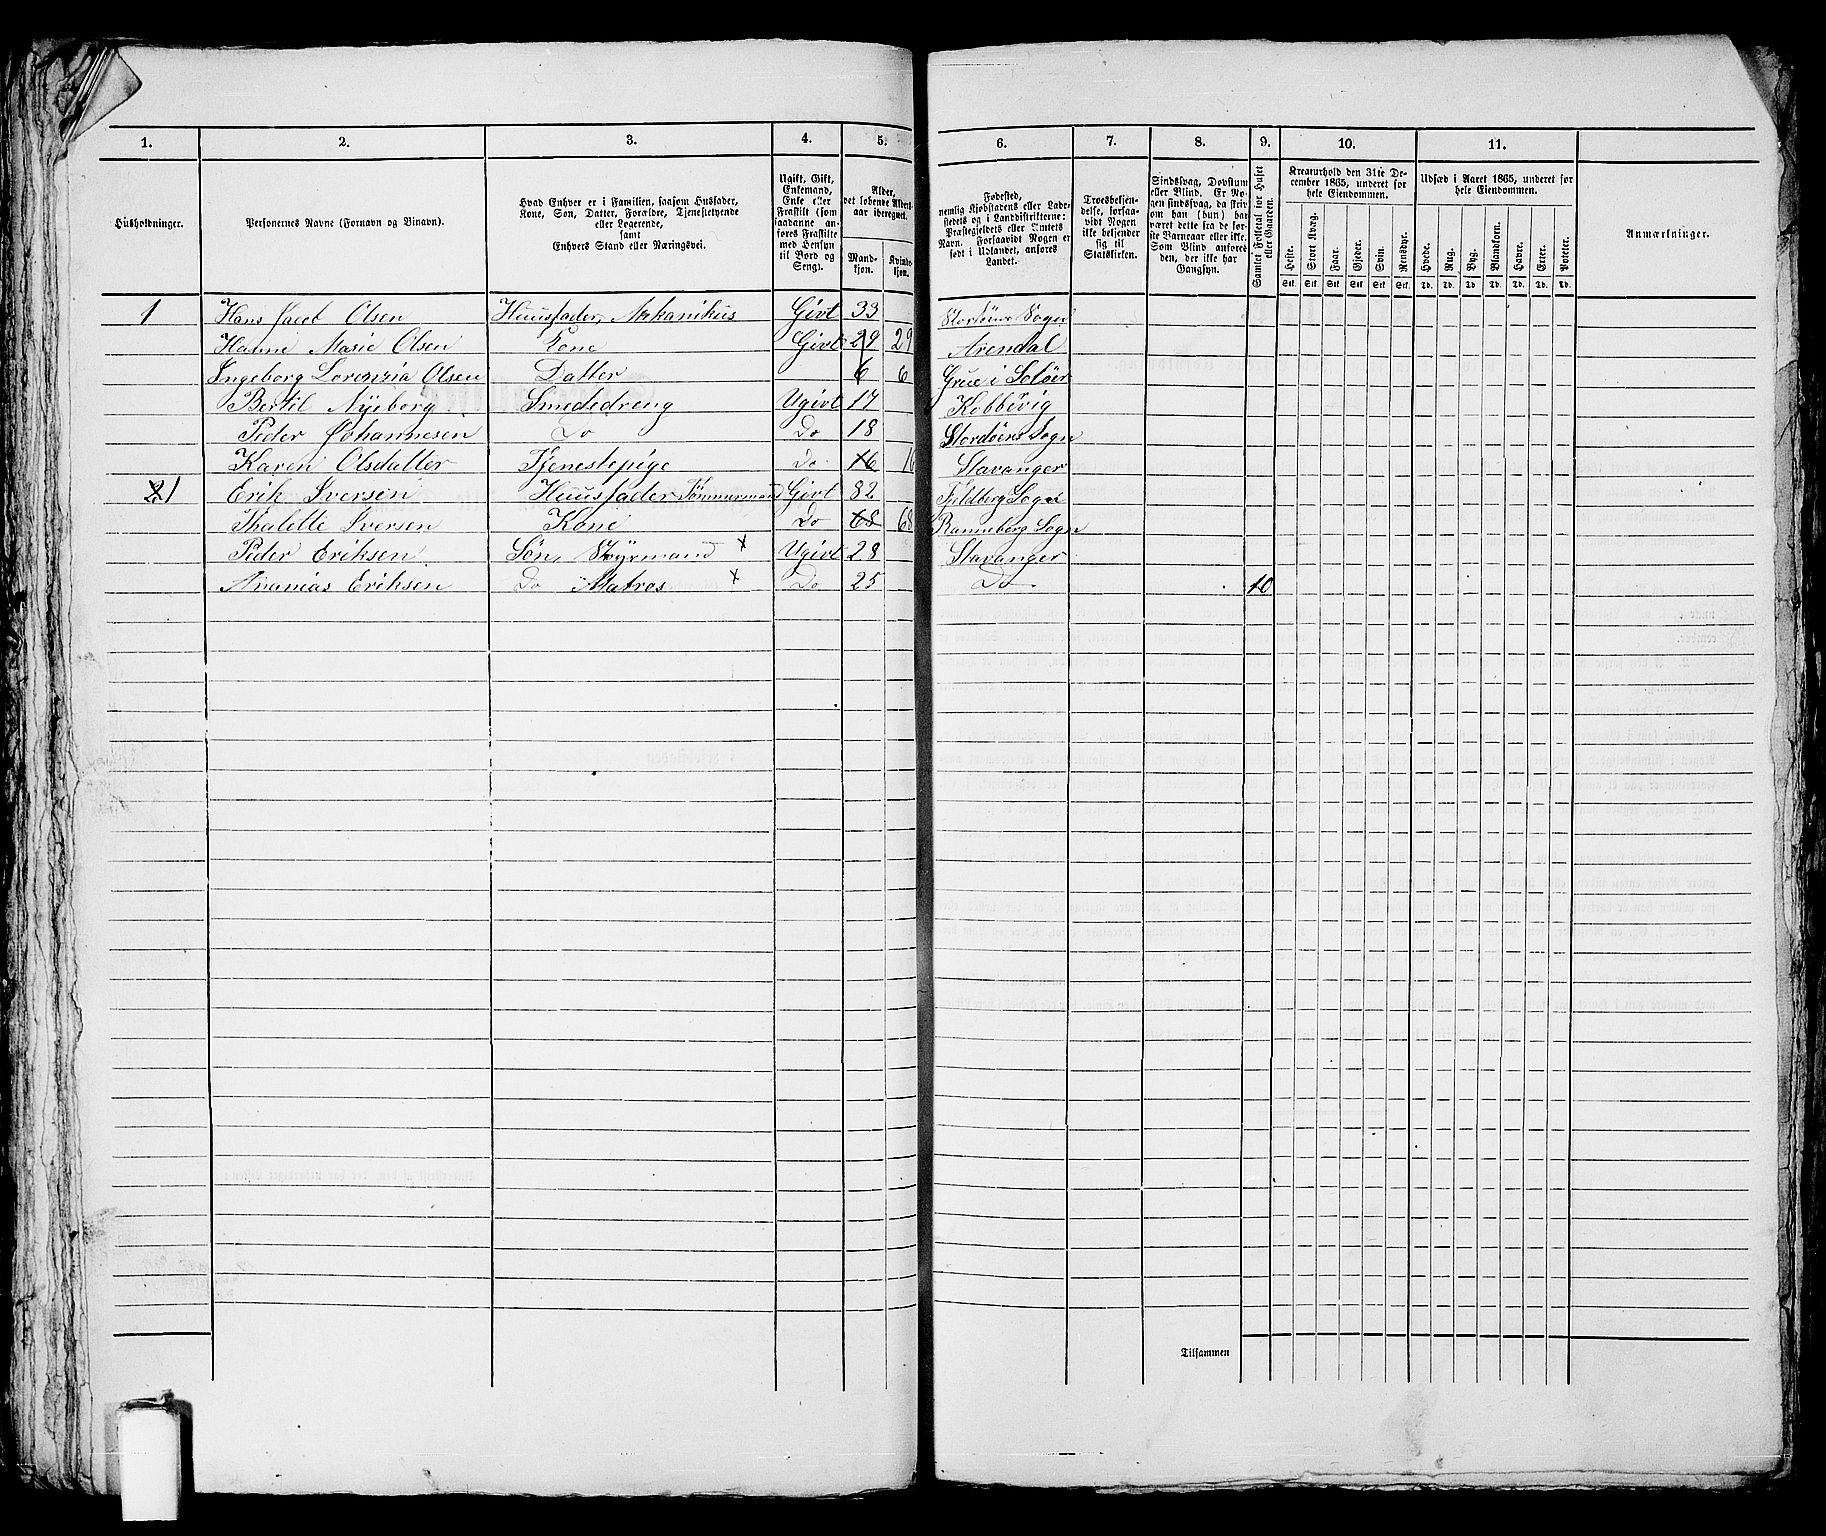 1. 2. 3. 4. 5. 6. 7. 8. 9. 10. 11.
Husholdninger.
Personernes Navne (Fornavn og Binavn).
Hvad Enhver er i Familien, saasom Husfader,
Kone, Søn, Datter, Forældre, Tjenestetyende
eller Logerende,
samt
Enhvers Stand eller Næringsvei.
Ugift, Gift,
Enkemand,
Enke eller
Fraskilt (som
saadanne an-
føres Fraskilte
med Hensyn
til Bord og
Seng).
Alder,
det løbende Alders-
aar iberegnet.
Mand-
kjøn.
Kvinde-
kjøn.
Fødested,
nemlig Kjøbstadens eller Lade-
stedets og i Landdistrikterne:
Præstegjeldets eller Amtets
Navn. Forsaavidt Nogen er
født i Udlandet, anføres
Landet.
Troesbekjen-
delse, forsaa-
vidt Nogen
ikke bekjender
sig til
Statskirken.
Sindssvag, Døvstum
eller Blind. Er No-
gen sindssvag, da skriv
om han (hun) har
været dette fra de før-
ste Barneaar eller ikke.
Som Blind anføres
den, der ikke har
Gangsyn.
Samlet Folketal for Huset
eller Gaarden.
Kreaturhold den 31te De-
cember 1865, underet for
hele Eiendommen.
Heste. Stort Kvæg. Faar. Gjeder. Svin. Rensdyr.
Stk. Stk. Stk. Stk. Stk. Stk.
Udsæd i Aaret 1865, underet for
hele Eiendommen.
Hvede. Rug. Byg. Blandkorn. Havre. Erter. Poteter.
Td. Td. Td. Td. Td. Td. Td.
Anmærkninger.
1 Hans Olsen Huusfader, Mekanikus Givt 33 Sogn
Hanne Marie Olsen Kone Givt 29 29 Arendal
Ingeborg Lorenzia Olsen Datter 6 6 Grue i Soløer
Bertil Nyeborg Smededreng Ugivt 17 Kobbevig
Peder Johannesen Do Do 18 Stordøens Sogn
Karen Olsdatter Tjenestepige Do 16 16 Stavanger
2 1 Erik Iversen Huusfader Tømmermand Givt 82 Fjeldberg Sogn
Thalette Iversen Kone Do 68 68 Ranneberg Sogn
Peder Eriksen Søn, Styrmand x Ugivt 28 Stavanger
Ananias Eriksen Do Matros x Do 25 Do 10
Tilsammen